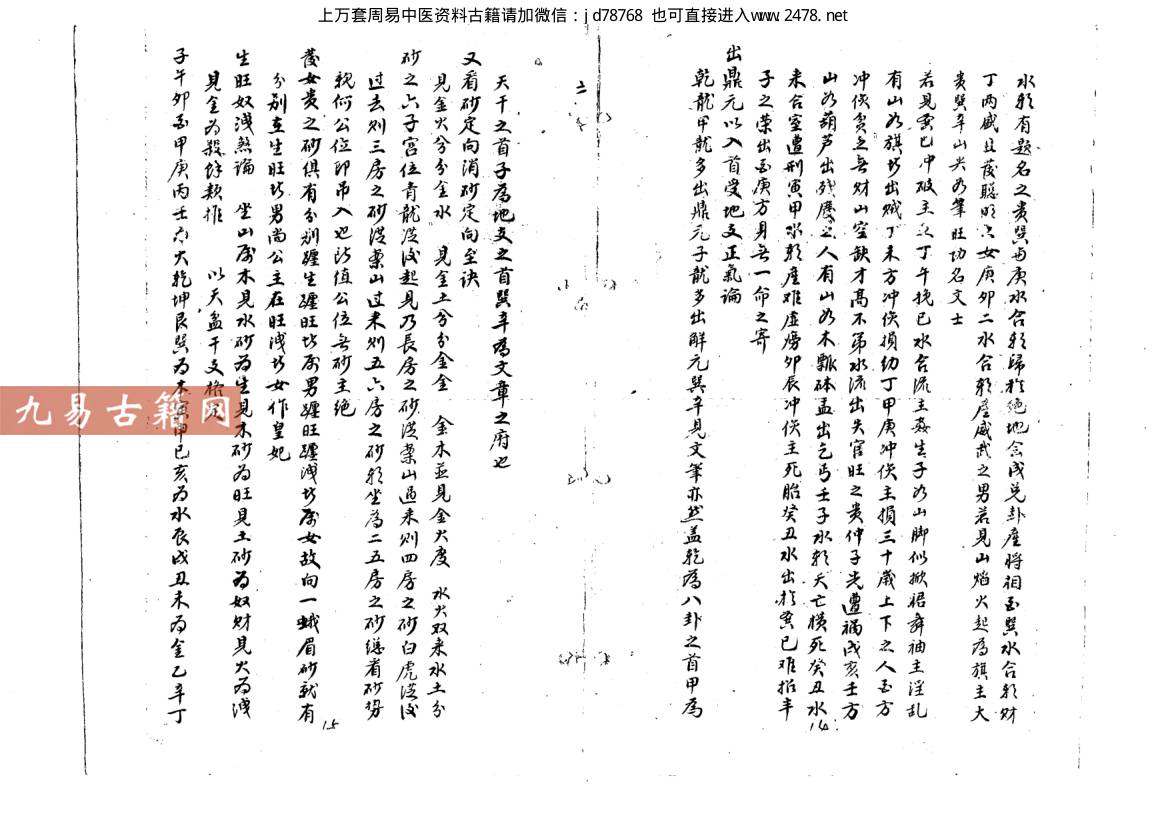 上万套周易中医资料古籍请加微信：jd78768 也可直接进入www.2478.net
水朝有题名之贵巽丙庚水合朝歸於绝地會成兑卦産将相至巽水合朝财
丁两盛且發聪明六女庚卯二水合朝産威武之男若見山焰火起為旗主大
贵巽辛山尖为筆旺功名文士
若見亥巳冲破主之丁午挽巳水合流主姦生子为山脚似掀裙舞袖主淫乱
有山为旗出贼丁未方冲伤損幼丁甲庚冲伤主損三十歲上下之人至方
冲伤贫乏無财山空缺才高不第水流出失官旺之贵仲子先遭禍戌亥壬方
山为葫芦出残之人有山为木瓢砵盂出乞丐壬子水朝夭亡横死癸丑水
来合室遭刑寅甲水朝産难虚痨卯辰冲伤主死胎癸丑水出於亥巳难招丰
子之荣出至庚方身無一命之寄
出鼎元以入首受地支正氣論
乾龍甲龍多出鼎元子龍多出解元巽辛見文筆亦然盖乾為八卦之首甲為
14
天干之首子為地支之首巽辛為文章之府也
又看砂定向消砂定向至诀
見金火兮分金水 見金土兮分金金 金木並見金火度 水火双来水土分
砂之六子宫位青龍從後起見乃長房之砂從案山過来则四房之砂白虎從後
过去则三房之砂從案山过来则五六房之砂朝坐為二五房之砂總看砂場
親何公位即吊入也所值公位無砂主绝
發女贵之砂俱有分别躔生躔旺坊房男躔旺躔洩坊房女故向一蛾眉砂就有
分别在生旺坊男尚公主在旺洩坊女作皇妃
15
生旺奴洩煞論 坐山属木見水砂為生見木砂為旺見土砂為奴财見火為洩
見金為殺餘類推 以天盘干支格定
子午卯酉甲庚丙壬为火乾坤艮巽为木寅申巳亥为水辰戌丑未为金乙辛丁
九易古籍网